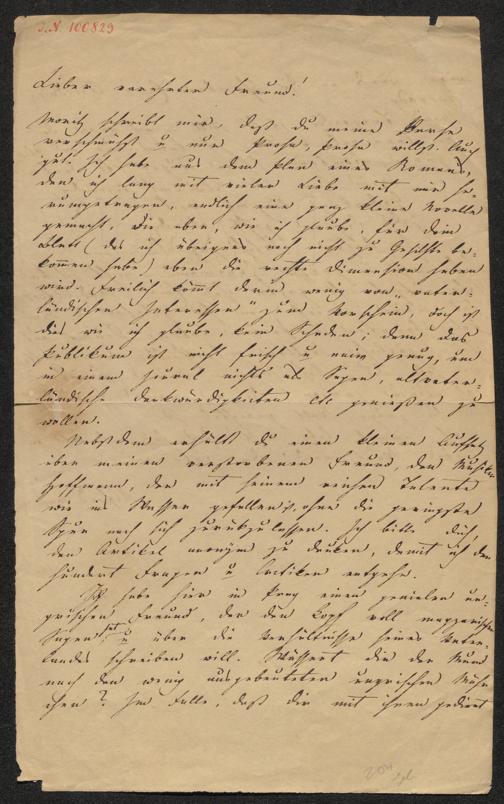 J.N. 100829
Lieber verehrter Freund!
Moritz schreibt mir, daß du meine Verse
verschmähst u nur Prosa, Prosa willst. Auch
gut. Ich habe aus dem Plan eines Romans,
den ich lang mit vieler Liebe mit mir he-
rumgetragen, endlich eine ganz kleine Novelle
gemacht, die eben, wie ich glaube, für dein
Blatt (das ich übrigens noch nicht zu Gesichte be-
kommen habe) eben die rechte Dimension haben
wird. Freilich kömmt darin wenig von „vater-
ländischen Interessen" zum Vorschein, doch ist
dies wie ich glaube, kein Schaden; denn das
Publikum ist nicht frisch u naiv genug, um
in einem Journal nichts als Sagen, altvater-
ländische Denkwürdigkeiten etc genießen zu
wollen.
Nebstdem erhältst du einen kleinen Aufsatz
über meinen verstorbenen Freund, den Musiker
Hoffmann, der mit seinem reichen Talente
wie ins Wasser gefallen ist, ohne die geringste
Spur nach sich zurückzulassen. Ich bitte dich,
den Artikel anonym zu drucken, damit ich den
hundert Fragen u Kritiken entgehe.
Ich habe hier in Prag einen genialen un-
grischen Freund, der den Kopf voll magyarischer
Sagen hat, u über die Verhältnisse seines Vater-
landes schreiben will. Wässert dir der Mund
nach den wenig ausgebeuteten ungrischen Mähr-
chen? Im Falle, daß dir mit ihnen gedient